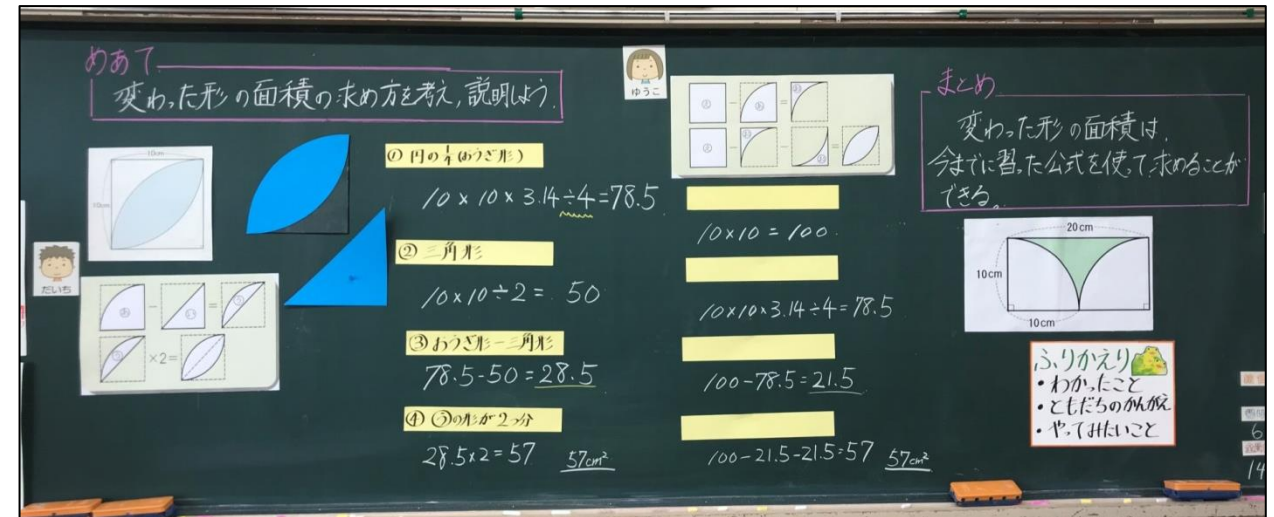 めあて
変わった形の面積の求め方を考え,説明しよう.
10cm
10cm
だいち
あ
い
う
う
×2=
① 円の1/4(おうぎ形)
10×10×3.14÷4=78.5
② 三角形
10×10÷2= 50
③ おうぎ形-三角形
78.5-50=28.5
④ うの形が2つ分
28.5×2=57 57cm²
ゆうこ
10×10=100
10×10×3.14÷4=78.5
100-78.5=21.5
100-21.5-21.5=57 57cm²
まとめ
変わった形の面積は,
今までに習った公式を使って求めることが
できる。
20cm
10cm
10cm
ふりかえり
・わかったこと
・ともだちのかんがえ
・やってみたいこと
6
14